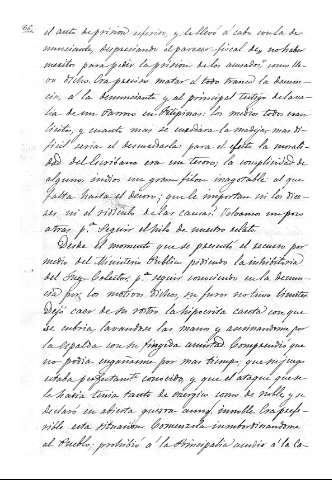 66.
el auto de prision referido, y se llevó á cabo con la de
nunciante, despreciando el parecer fiscal de no haber
meritos para pedir la prision de los acusados, como lle-
vo dicho. Era preciso matar á todo trance la denun-
cia, á la denunciante y al principal testigo de la va-
lia de un Barono en Filipinas: los medios todo eran
licitos, y cuanto mas se enredara la madeja, mas di-
ficil seria el desenredarla para el efecto la morali-
dad del Escribano era un tesoro; la complicidad de
algunos indios un gran filon inagotable al que
falta hasta el decoro; que le importan ni los dio-
ses ni el ridiculo de las causas. Volvamos un poco
atras pª seguir el hilo de nuestro relato.
Desde el momento que se presentó el recurso por
medio del Ministerio Publico pidiendo la inhibitoria
del Juez Colector, pª seguir conociendo en la denun-
cia por los motivos dichos, su furor no tuvo limites
Dejó caer de su rostro la hipocrita careta con que
se cubria, lavandose las manos y asesinandome por
la espalda con su fingida amistad. Comprendió que
no podia engañarme por mas tiempo, que su juego
estaba perfectamte conocido, y que el ataque que se
le hacia tenia tanto de energico como de noble, y se
declaró en abierta guerra aunq. innoble. Era prefe-
rible esta situacion. Comenzó á insubordinandome
al Pueblo, prohibió á la Principalia acudir á la Ca-